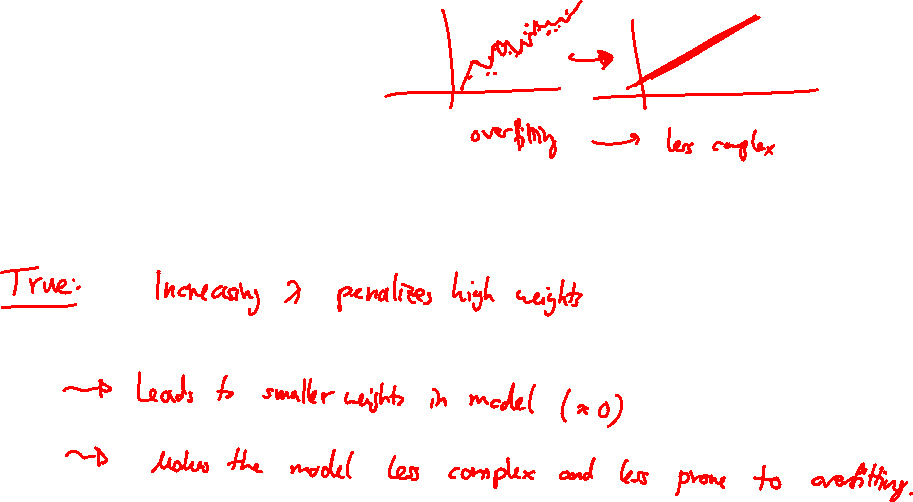 overfitting → less complex
True: Increasing λ penalizes high weights
→ Leads to smaller weights in model (≈ 0)
→ Makes the model less complex and less prone to overfitting.